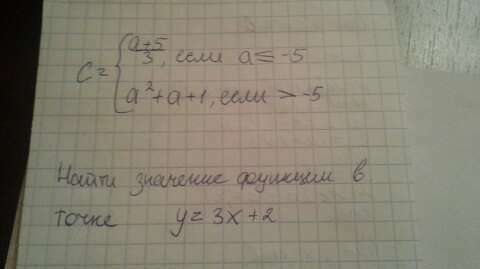 C = { a+5/3, если a ≤ -5
a²+a+1, если > -5
Найти значение функции в
точке y = 3x+2